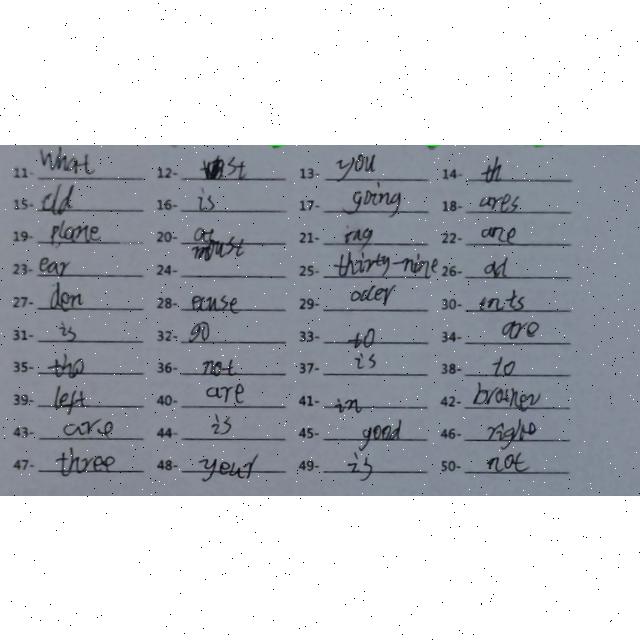 11- What 12- 13- you 14- th
15- 16- is 17- going 18- ares
19- plane 20- 21- 22- are
23- ear 24- must 25- thirty-nine 26- ad
27- den 28- 29- oder 30- ents
31- is 32- go 33- to 34- are
35- tha 36- not 37- is 38- to
39- left 40- are 41- in 42- brother
43- are 44- is 45- good 46- right
47- three 48- 49- is 50- not